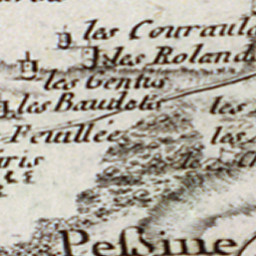 les Couraul
les Roland
les Gentis
les Baudets
les
Feuillée
les
les
Peſſine